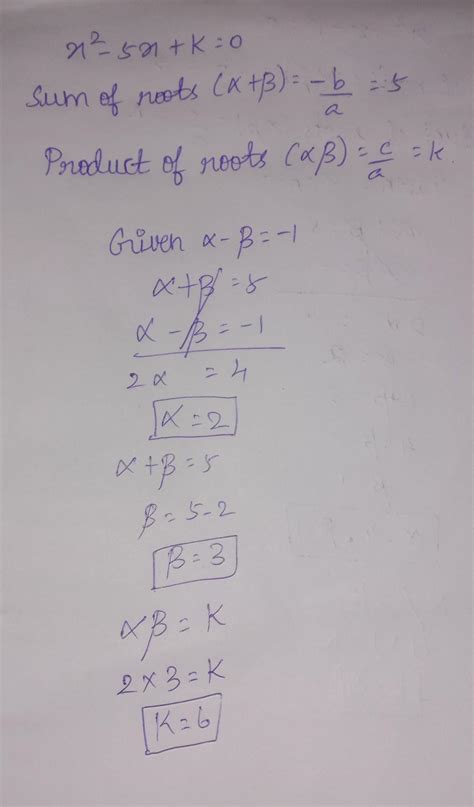 x² - 5x + K = 0
Sum of roots (α+β) = -b/a = 5
Product of roots (αβ) = c/a = K
Given α - β = -1
α + β = 5
α - β = -1
2α = 4
α = 2
α + β = 5
β = 5 - 2
β = 3
αβ = K
2 × 3 = K
K = 6